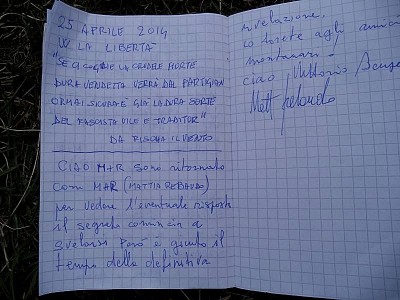 25 APRILE 2014
W LA LIBERTA'
"SE CI COGLIE LA CRUDELE MORTE
DURA VENDETTA VERRÀ DAL PARTIGIAN
ORMAI SICURA È GIÀ LA DURA SORTE
DEL FASCISTA VILE E TRADITOR"
DA FISCHIA IL VENTO
CIAO M+R SONO ritornato
con M+R (MATTIA
per vedere l'eventuale risposta
il segreto comincia a
svelarsi però è giunto il
tempo della definitiva
rivelazione,
lo farete agli amici
montanari.
ciao, Vittorio